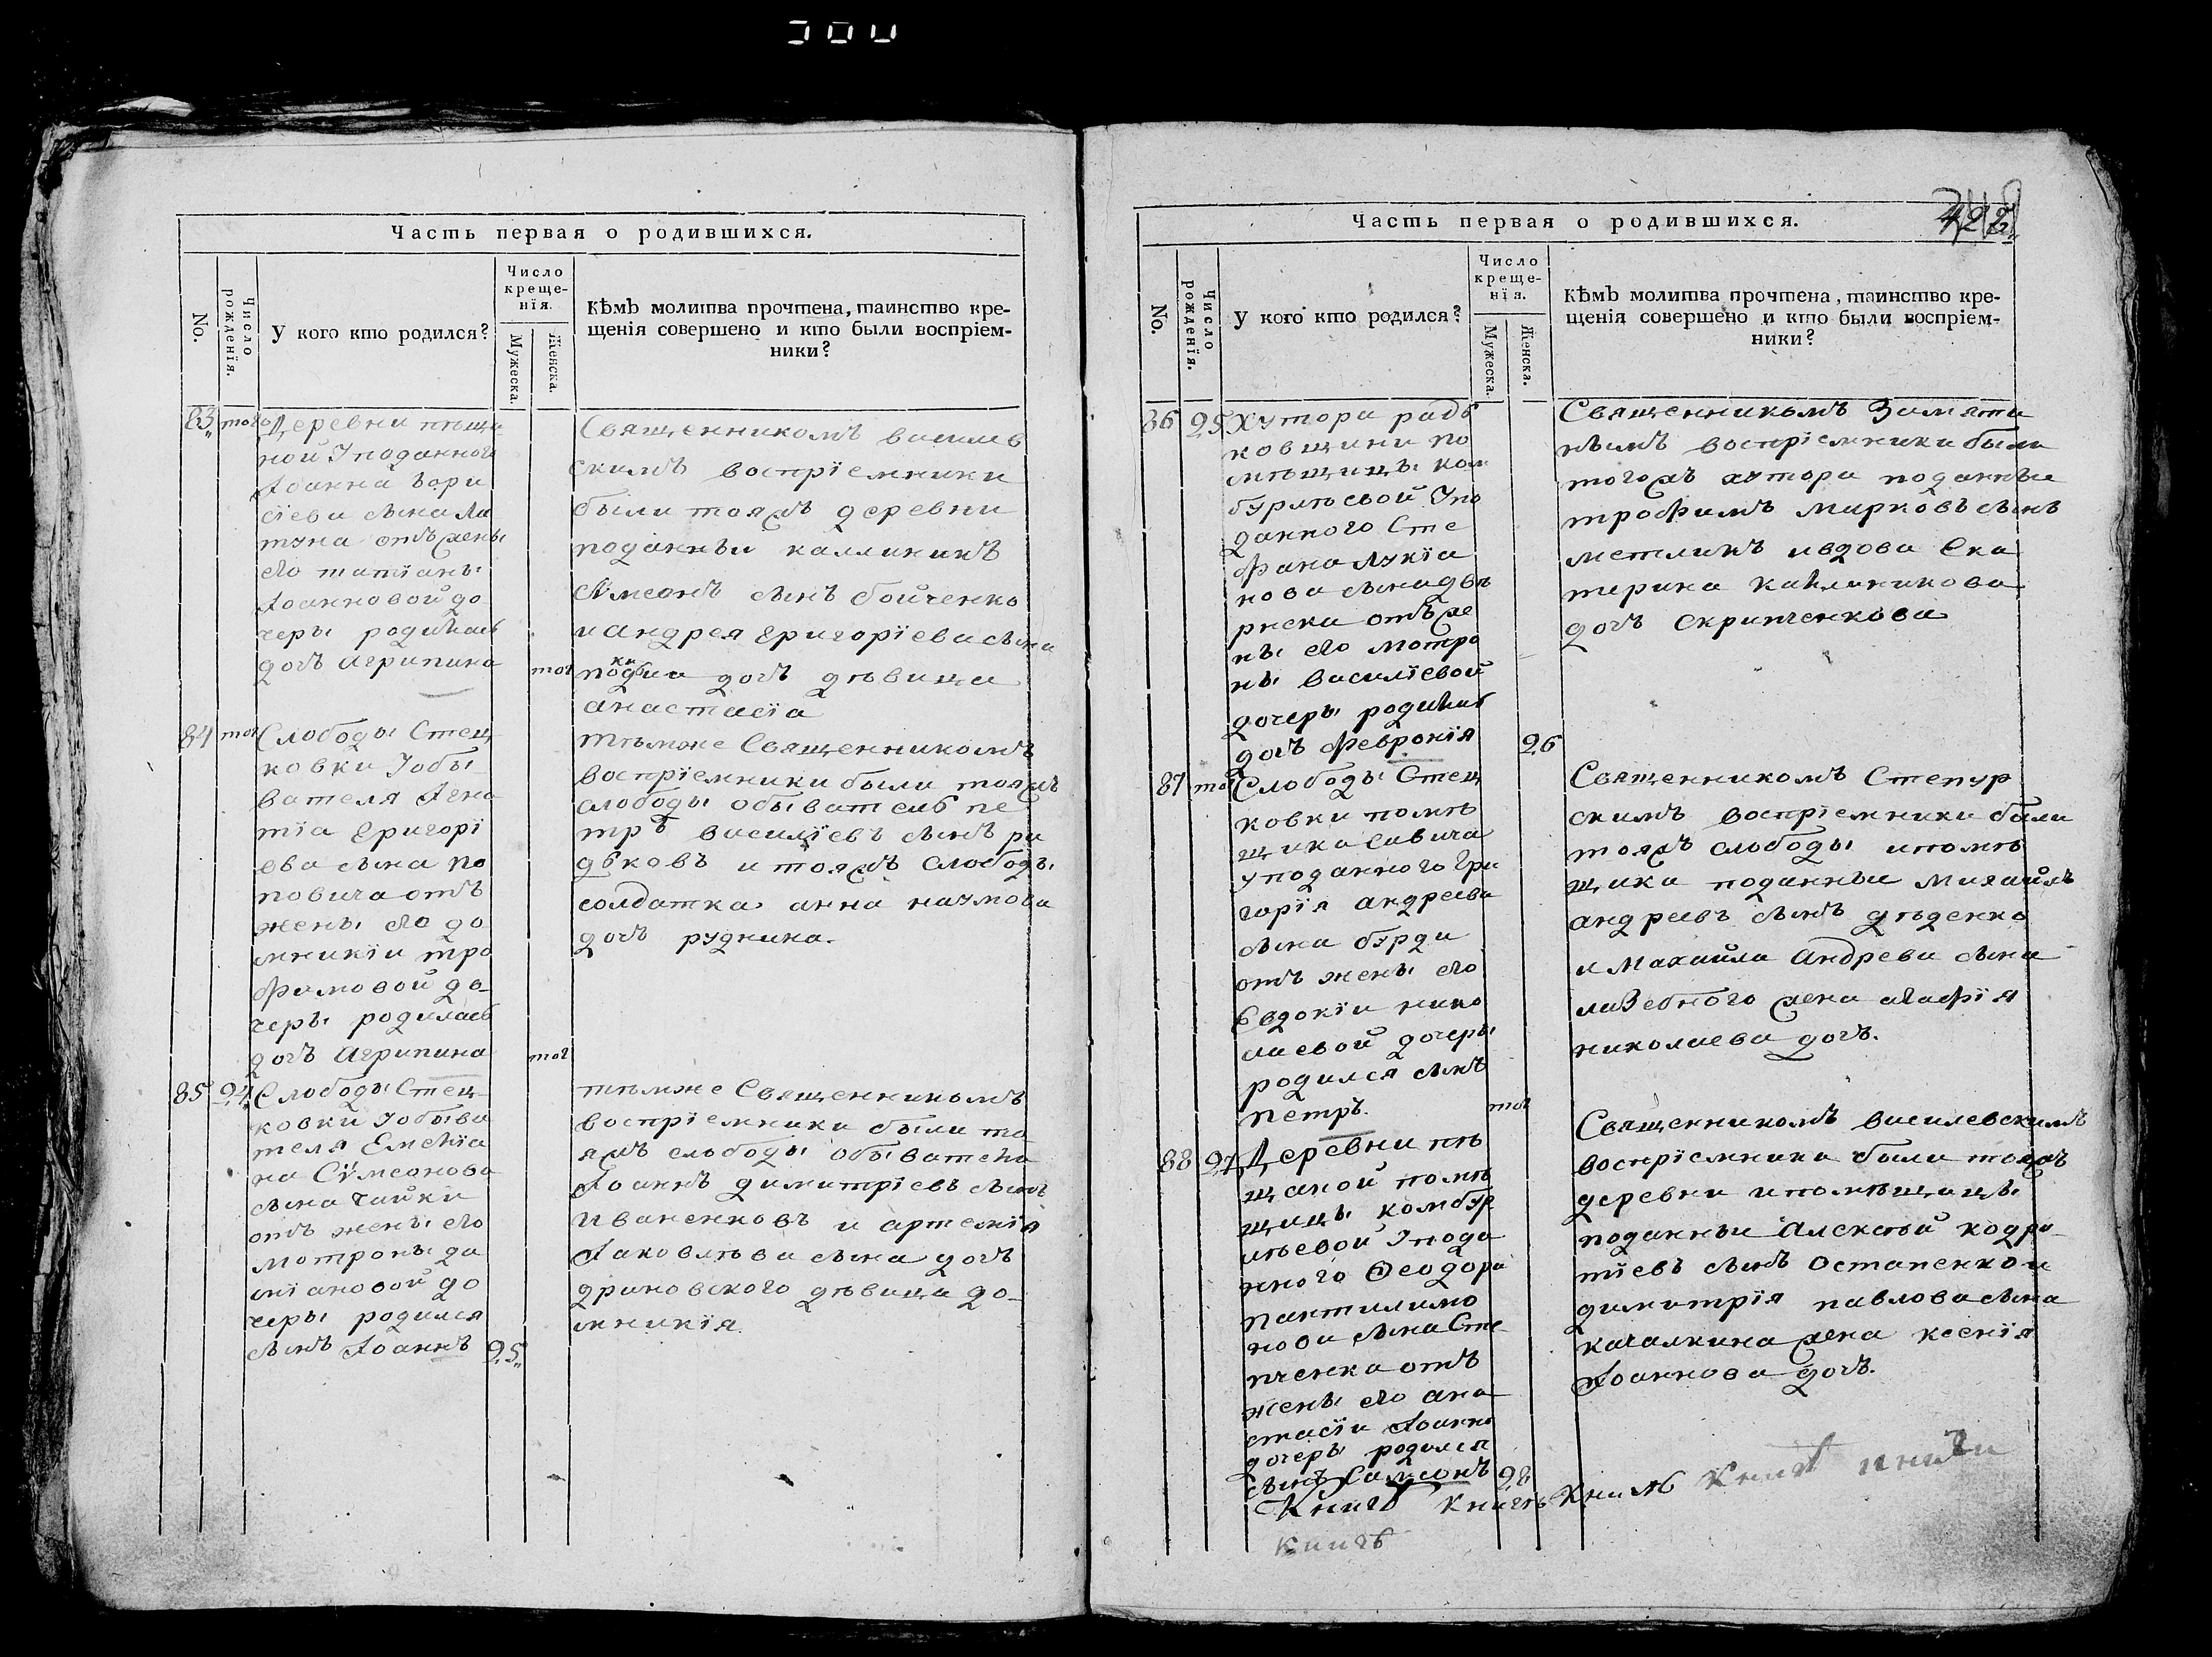 Часть первая о родившихся.
No.
Число рожденія.
У кого кто родился?
Число
креще-
нія.
Мужеска.
Женска.
Кѣмъ молитва прочтена, таинство кре-
щенія совершено и кто были воспріем-
ники?
83 того
Деревни пѣща
ной Уподанного
Іоанна Бори
сіева сына Ла
туна отъ жены
его татіаны
Іоанновой до
черы родилась
дочъ агрипина
тог
Священникомъ василев
скимъ воспріемники
были тояжъ деревни
поданныи каллиникъ
сѵмеонъ сынъ бойченко
и андрея григоріева сына
дочъ дѣвица
анастасіа
84 тог
Слободы Стец
ковки Уобы
вателя Игна
тіа григорі
ева сына по
повича отъ
жены его до
мникіи тро
фимовой до-
черы родилась
дочъ агрипина
тог
тѣмже Священникомъ
воспріемники были тояжъ
слободы обыватель пе
тръ василіевъ сынъ ра
дковъ и тояжъ слободы
солдатка анна наумова
дочъ руднина.
85 24
Слободы Стец-
ковки Уобыва
теля Емеліа
на Сѵмеонова
сына чайки
отъ жены его
мотроны да
міановой до
черы родился
сынъ Іоаннъ 25
тѣмже Священникомъ
воспріемники были то
яжъ слободы обывателя
Іоаннъ димитріевъ сынъ
Иваненковъ и артемія
Іаковлѣва сына дочъ
драновского дѣвица до-
мникія
Часть первая о родившихся.
422
No.
Число рожденія.
У кого кто родился?
Число
креще-
нія.
Мужеска.
Женска.
Кѣмъ молитва прочтена, таинство кре-
щенія совершено и кто были воспріем-
ники?
86 25
Хутора радь
ковщини по
мѣщицы ком
бурлѣевой Упо
данного Сте
фана Лукіа
нова сына двѣ
рнека отъ же
ны его мотро
ны василіевой
дочеры родилась
дочъ февронія
26
Священникомъ Замяти
нымъ воспріемники были
тогожъ хутора поданныи
трофимъ марковъ сынъ
метликъ и вдова Ека
терина каллиникова
дочъ скрипченкова
87 тог
Слободы Стец
ковки помѣ
щика савича
уподанного Гри
горія андреева
сына бурди
отъ жены его
Евдокіи нико
лаевой дочеры
родился сынъ
петръ.
тог
Священникомъ Степур
скимъ воспріемники были
тояжъ слободы ипомѣ
щика поданныи михайлъ
андреевъ сынъ дѣденко
и махайла андрева сына
лизебного жена агафія
николаева дочъ.
88 27
Деревни пѣ
щаной помѣ
щицы комбур
лѣевой Упода
нного Ѳеодора
пантилимо
нова сына Сте
пченка отъ
жены его ана
стасіи Іоанно
дочеры родился
сынъ Самсонъ
28
Священникомъ василевскимъ
воспріемники были тояжъ
деревни ипомѣщицы
поданныи алексѣй кодра
тіевъ сынъ остапенко и
димитрія павлова сына
качалкина жена ксенія
Іоаннова дочъ.